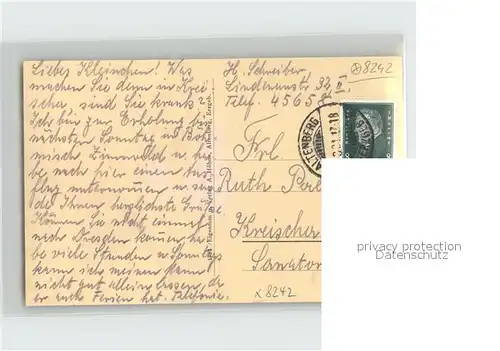 Liebes Kleinchen! Was
machen Sie denn in Krei
scha, sind Sie krank?
Ich bin zur Erholung bis
nächsten Sonntag in Böh
misch Zinnwald u. habe
nach hier einen Ausflug
unternommen u. sende
Ihnen herzlichste Grüße
Können Sie nicht einmal
nach Dresden kommen, habe
viele Stunden u. Sonntags
kann ich meinen Mann
nicht gut alleine lassen, da
er auch Ferien hat. Telefonie
H. Schreiber
Lindenaustr. 32, II.
Telef. 45658
8242
ALTENBERG
Frl.
Ruth
Kreischa
Sanator
x 8242
privacy protection
Datenschutz